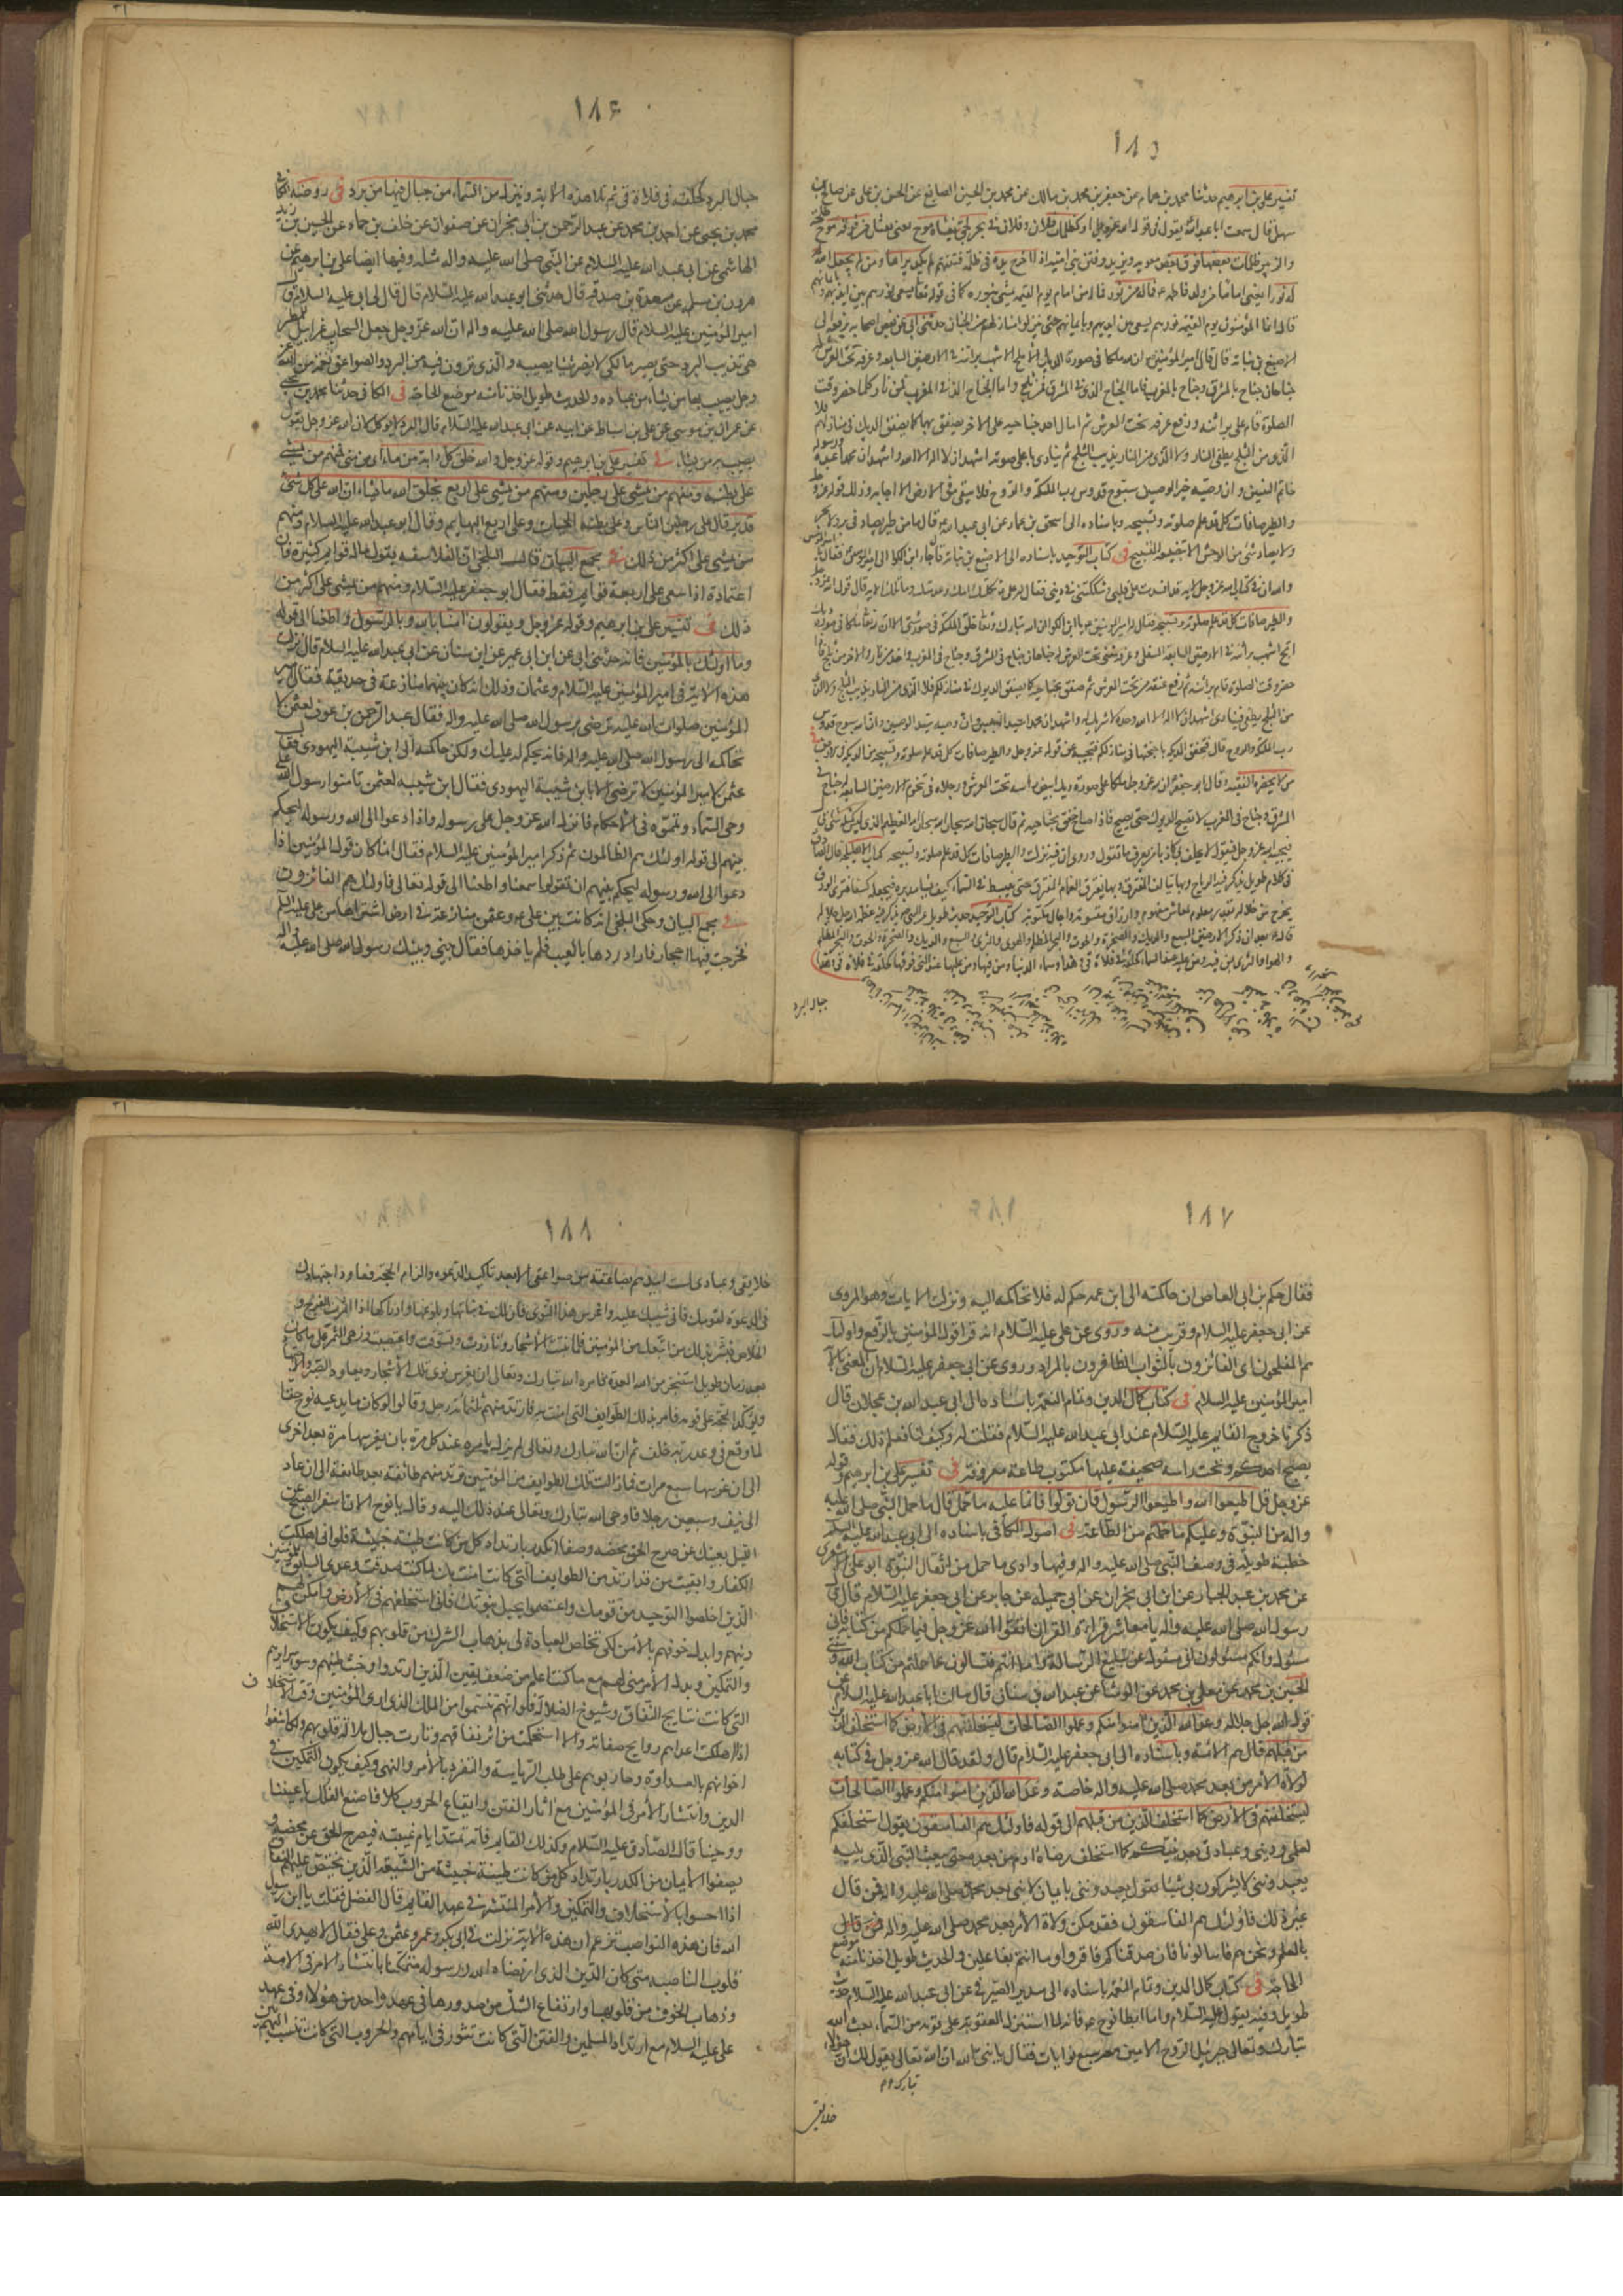 ١٨٥
تفسير علي بن ابراهيم حدثنا محمد بن همام عن جعفر بن محمد بن مالك عن محمد بن الحسين الصايغ عن الحسن بن علي عن صالح بن
سهل قال سمعت ابا عبد الله يقول في قوله الله عز وجل او كظلمات فلان وفلان في بحر لجي يغشاه موج يعنى نعثل من فوقه موج طلحة
والزبير ظلمات بعضها فوق بعض معوية ويزيد وفتن بني امية اذا اخرج يده في ظلمة فتنتهم لم يكد يراها ومن لم يجعل الله
له نورا يعنى اماما من ولد فاطمة ع فما له من نور فما له من امام يوم القيمة يمشى بنوره كما في قوله تعا يسعى نورهم بين ايديهم وبايمانهم
قال انما المؤمنون يوم القيمة نورهم يسعى بين ايديهم وبايمانهم حتى ينزلوا منازلهم من الجنان حدثنى ابي عن بعض اصحابه يرفعه الى
الاصبغ بن نباتة قال قال امير المؤمنين ان لله ملكا في صورة الديك الاملح الاشهب براثنه في الارضين السابعة وعرفه تحت العرش
جناحان جناح بالمشرق وجناح بالمغرب فاما الجناح الذي في المشرق فمن ثلج واما الجناح الذي في المغرب فمن نار وكلما حضر وقت
الصلوة قام على براثنه ورفع عرفه تحت العرش ثم امال احد جناحيه على الاخر يصفق بهما كما يصفق الديك في منازلكم فلا
الذي من الثلج يطفى النار ولا الذي من النار يذيب الثلج ثم ينادى باعلى صوته اشهد ان لا اله الا الله واشهد ان محمدا عبده ورسوله
خاتم النبيين وان وصيه خير الوصيين سبوح قدوس رب الملئكة والروح فلا يبقى في الارض ديك الا اجابه وذلك قوله عز وجل
والطير صافات كل قد علم صلوته وتسبيحه وباسناده الى اسحق بن عمار عن ابي عبد الله ع قال ما من طير يصاد في بر ولا بحر
ولا يصاد شئ من الوحش الا بتضييعه التسبيح في كتاب التوحيد باسناده الى الاصبغ بن نباتة قال جاء ابن الكوا الى امير المؤمنين فقال يا امير المؤمنين
والطير صافات كل قد علم صلوته وتسبيحه فقال له امير المؤمنين ع يا ابن الكوا ان الله تبارك وتعا خلق الملئكة في صور شتى الا ان لله تعا ملكا في صورة ديك
حضر وقت الصلوة قام على براثنه ثم رفع عنقه من تحت العرش ثم صفق بجناحيه كما يصفق الديوك في منازلكم فلا الذي من النار يذيب الثلج ولا الذي
من الثلج يطفى فينادى اشهد ان لا اله الا الله وحده لا شريك له واشهد ان محمدا سيد النبيين وان وصيه سيد الوصيين وان الله سبوح قدوس
رب الملئكة والروح قال فتخفق الديكة باجنحتها في منازلكم فتجيبه عن قوله وهو قوله عز وجل والطير صافات كل قد علم صلوته وتسبيحه من الديكة في الارض
من لا يحضره الفقيه وقال ابو جعفر ان لله عز وجل ملكا على صورة ديك ابيض راسه تحت العرش ورجلاه في تخوم الارضين السابعة له جناح في
المشرق وجناح في المغرب لا تصيح الديوك حتى يصيح فاذا صاح خفق بجناحيه ثم قال سبحان الله سبحان الله سبحان الله العظيم الذي ليس كمثله شئ
فيجيبه الله عز وجل فيقول لا يحلف بى كاذبا من يعرف ما تقول وروى ان فيه نزلت والطير صافات كل قد علم صلوته وتسبيحه كتاب الاهليلجة قال الصادق
في كلام طويل يذكر فيه الرياح وبها يتالف المفترق وبها يفترق الغمام المطبق حتى ينبسط في السماء كيف يشاء مدبره فيجعله كسفا فترى الودق
يخرج من خلاله بقدر معلوم لمعاش مفهوم وارزاق مقسومة واجال مكتوبة كتاب التوحيد حديث طويل عن النبي ص يذكر فيه عظمة الله جل جلاله
قال ع بعد ان ذكر الارضين السبع والديك والصخرة والحوت والبحر المظلم والهوى والثرى والسبع والديك والصخرة والحوت والبحر المظلم
والهوا والثرى بمن فيه ومن عليه عند السماء كحلقة في فلاة قي وهذا وسماء الدنيا ومن فيها ومن عليها عند التى فوقها كحلقة في فلاة قي وهذا
جبال البرد
١٨۶
جبال البرد كحلقة في فلاة قي ثم تلا هذه الاية وينزل من السماء من جبال فيها من برد في روضة الكافى
محمد بن يحيى عن احمد بن محمد عن عبد الرحمن بن ابي نجران عن صفوان عن خلف بن حماد عن الحسين بن زيد
الهاشمى عن ابي عبد الله عليه السلام عن النبي صلى الله عليه واله مثله وفيها ايضا على بن ابرهيم عن
هرون بن مسلم عن مسعدة بن صدقة قال حدثني ابو عبد الله عليه السلام قال قال لى ابي عليه السلام ان
امير المؤمنين عليه السلام قال رسول الله صلى الله عليه واله ان الله عز وجل جعل السحاب غرابيل للمطر
هى تذيب البرد حتى يصير ماء لكى لا يضر شيئا يصيبه والذى ترون فيه من البرد والصواعق نقمة من الله عز
وجل يصيب بها من يشاء من عباده والحديث طويل اخذنا منه موضع الحاجة في الكافى حدثنا محمد بن يحيى
عن عمران بن موسى عن على بن اسباط عن ابيه عن ابي عبد الله عليه السلام قال البرد لا يوكل لان الله عز وجل يقول
يصيب به من يشاء في تفسير على بن ابرهيم وقوله عز وجل والله خلق كل دابة من ماء اى من منى فمنهم من يمشى
على بطنه ومنهم من يمشى على رجلين ومنهم من يمشى على اربع يخلق الله ما يشاء ان الله على كل شئ
قدير قال على رجلين الناس وعلى بطنه الحيات وعلى اربع البهايم وقال ابو عبد الله عليه السلام ومنهم
من يمشى على اكثر من ذلك في مجمع البيان قال البلخى ان الفلاسفة يقول ما له قوائم كثيرة فان
اعتماده اذا سعى على اربعة قوائم فقط فقال ابو جعفر عليه السلام ومنهم من يمشى على اكثر من
ذلك في تفسير على بن ابرهيم وقوله عز وجل ويقولون امنا بالله وبالرسول واطعنا الى قوله
وما اولئك بالمؤمنين فانه حدثنى ابى عن ابن ابى عمير عن ابن سنان عن ابي عبد الله عليه السلام قال نزلت
هذه الاية في امير المؤمنين عليه السلام وعثمان وذلك انه كان بينهما منازعة في حديقة فقال امير
المؤمنين صلوات الله عليه نرضى برسول الله صلى الله عليه واله فقال عبد الرحمن بن عوف لعثمن لا
تحاكمه الى رسول الله صلى الله عليه واله فانه يحكم له عليك ولكن حاكمه الى ابن شيبة اليهودى فقال
عثمن لامير المؤمنين لا نرضى الا بابن شيبة اليهودى فقال ابن شيبة لعثمن تامنوا رسول الله على
وحى السماء وتتهموه في الاحكام فانزل الله عز وجل على رسوله واذا دعوا الى الله ورسوله ليحكم
بينهم الى قوله اولئك هم الظالمون ثم ذكر امير المؤمنين عليه السلام فقال انما كان قول المؤمنين اذا
دعوا الى الله ورسوله ليحكم بينهم ان يقولوا سمعنا واطعنا الى قوله تعالى فاولئك هم الفائزون
في مجمع البيان وحكى البلخى انه كانت بين على ع وعثمن منازعة في ارض اشتراها من على عليه السلم
فخرجت فيها احجار فاراد ردها بالعيب فلم ياخذها فقال بينى وبينك رسول الله صلى الله عليه واله
١٨٧
فقال حكم بن ابي العاص ان حاكمته الى ابن عمه حكم له فلا تحاكمه اليه ونزلت الايات وهو المروى
عن ابي جعفر عليه السلام وقريب منه وروى عن على عليه السلام انه قرا قول المؤمنين بالرفع واولئك
هم المفلحون اى الفائزون بالثواب الظافرون بالمراد وروى عن ابي جعفر عليه السلام ان المعنى بالاية
امير المؤمنين عليه السلام في كتاب كمال الدين وتمام النعمة باسناده الى ابي عبد الله بن عجلان قال
ذكرنا خروج القايم عليه السلام عند ابي عبد الله عليه السلام فقلت له وكيف لنا نعلم ذلك فقال
يصبح احدكم وتحت راسه صحيفة عليها مكتوب طاعة معروفة في تفسير على بن ابرهيم وقوله
عز وجل قل اطيعوا الله واطيعوا الرسول فان تولوا فانما عليه ما حمل قال ما حمل النبي صلى الله عليه
واله من النبوة وعليكم ما حملتم من الطاعة في اصول الكافى باسناده الى ابي عبد الله عليه السلم
خطبة طويلة في وصف النبي صلى الله عليه واله وفيها وادى ما حمل من اثقال النبوة ابو على الاشعرى
عن محمد بن عبد الجبار عن ابن ابي نجران عن ابي جميلة عن جابر عن ابي جعفر عليه السلام قال قال
رسول الله صلى الله عليه واله يا معاشر قراء القران اتقوا الله عز وجل فيما حملكم من كتابه فانى
مسئول وانكم مسئولون انى مسئول عن تبليغ الرسالة واما انتم فتسالون عما حملتم من كتاب الله وسنتى
الحسين بن محمد عن معلى بن محمد عن الوشا عن عبد الله بن سنان قال سالت ابا عبد الله عليه السلام عن
قول الله جل جلاله وعد الله الذين امنوا منكم وعملوا الصالحات ليستخلفنهم في الارض كما استخلف الذين
من قبلهم قال هم الائمة وباسناده الى ابي جعفر عليه السلام قال ولقد قال الله عز وجل في كتابه
لولاة الامر من بعد محمد صلى الله عليه واله خاصة وعد الله الذين امنوا منكم وعملوا الصالحات
ليستخلفنهم في الارض كما استخلف الذين من قبلهم الى قوله فاولئك هم الفاسقون يقول استخلفكم
لعلمى ودينى وعبادتى بعد نبيكم كما استخلف وصاة ادم من بعده حتى يبعث النبي الذى يليه
يعبدوننى لا يشركون بى شيئا يقول يعبدوننى بايمان لا نبى بعد محمد صلى الله عليه واله فمن قال
غير ذلك فاولئك هم الفاسقون فقد مكن ولاة الامر بعد محمد صلى الله عليه واله
بالعلم ونحن هم فاسالونا فان صدقناكم فاقروا وما انتم بفاعلين والحديث طويل اخذنا منه موضع
الحاجة في كتاب كمال الدين وتمام النعمة باسناده الى سدير الصيرفى عن ابي عبد الله عليه السلام حديث
طويل وفيه يقول عليه السلام واما ابطا نوح ع فانه لما استنزل العقوبة على قومه من السماء بعث الله
تبارك وتعالى جبرئيل الروح الامين معه سبع نوايات فقال يا نبى الله ان الله تعالى يقول لك ان هؤلاء
تبارك
خلايقى
١٨٨
خلايقى وعبادى لست ابيدهم بصاعقة من صواعقى الا بعد تاكيد الدعوة والزام الحجة فعاود اجتهادك
في الدعوة لقومك فانى مثيبك عليه واغرس هذا النوى فان لك في نباتها وبلوغها وادراكها اذا اثمرت الفرج و
الخلاص فبشر بذلك من اتبعك من المؤمنين فلما نبتت الاشجار وتازرت وتسوقت واغتصنت وزهى الثمر على ما كان
بعد زمان طويل استنجز من الله العدة فامره الله تبارك وتعالى ان يغرس نوى تلك الاشجار ويعاود الصبر والاجتهاد
ويؤكد الحجة على قومه فاخبر بذلك الطوايف التى امنت به فارتد منهم ثلثمائة رجل وقالوا لو كان ما يدعيه نوح حقا
لما وقع في وعد ربه خلف ثم ان الله تبارك وتعالى لم يزل يامره عند كل مرة بان يغرسها مرة بعد اخرى
الى ان غرسها سبع مرات فما زالت تلك الطوايف من المؤمنين ترتد منهم طائفة بعد طائفة الى ان عاد
الى نيف وسبعين رجلا فاوحى الله تبارك وتعالى عند ذلك اليه وقال يا نوح الان اسفر الصبح عن
الليل بعينك حين صرح الحق عن محضه وصفا الكدر بارتداد كل من كانت طينته خبيثة فلو انى اهلكت
الكفار وابقيت من قد ارتد من الطوايف التى كانت امنت بك لما كنت صدقت وعدى السابق للمؤمنين
الذين اخلصوا التوحيد من قومك واعتصموا بحبل نبوتك فانى استخلفهم في الارض وامكن لهم
دينهم وابدل خوفهم بالامن لكى تخلص العبادة لى بذهاب الشرك من قلوبهم وكيف يكون الاستخلاف
والتمكين وبدل الامن منى لهم مع ما كنت اعلم من ضعف يقين الذين ارتدوا وخبث طينهم وسوء سرائرهم
التى كانت نتايج النفاق وشيوخ الضلالة فلو انهم تنسموا من الملك الذى اوتى المؤمنين وقت الاستخلاف
اذا اهلكت اعداءهم روايح صفاته ولاستحكمت سرائر نفاقهم وتارت حبال ضلالة قلوبهم ولكاشفوا
اخوانهم بالعداوة وحاربوهم على طلب الرياسة والتفرد بالامر والنهى وكيف يكون التمكين في
الدين وانتشار الامر في المؤمنين مع اثار الفتن وايقاع الحروب كلا فاصنع الفلك باعيننا
ووحينا قال الصادق عليه السلام وكذلك القايم فانه تمتد ايام غيبته فيصرح الحق عن محضه و
يصفو الايمان من الكدر بارتداد كل من كانت طينته خبيثة من الشيعة الذين يخشى عليهم النفاق
اذا احسوا بالاستخلاف والتمكين والامر المنتشر في عهد القايم قال المفضل فقلت يا ابن رسول
الله فان هذه النواصب تزعم ان هذه الاية نزلت في ابي بكر وعمر وعثمن وعلى فقال لا يهدى الله
قلوب الناصبة متى كان الدين الذى ارتضاه الله ورسوله متمكنا بانتشار الامر في الامة
وذهاب الخوف من قلوبها وارتفاع الشك من صدورها في عهد واحد من هؤلاء وفى عهد
على عليه السلام مع ارتداد المسلمين والفتن التى كانت تثور في ايامهم والحروب التى كانت تنشب بينهم